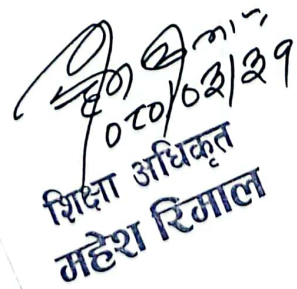 ०८०/०३/३१
शिक्षा अधिकृत
महेश रिमाल